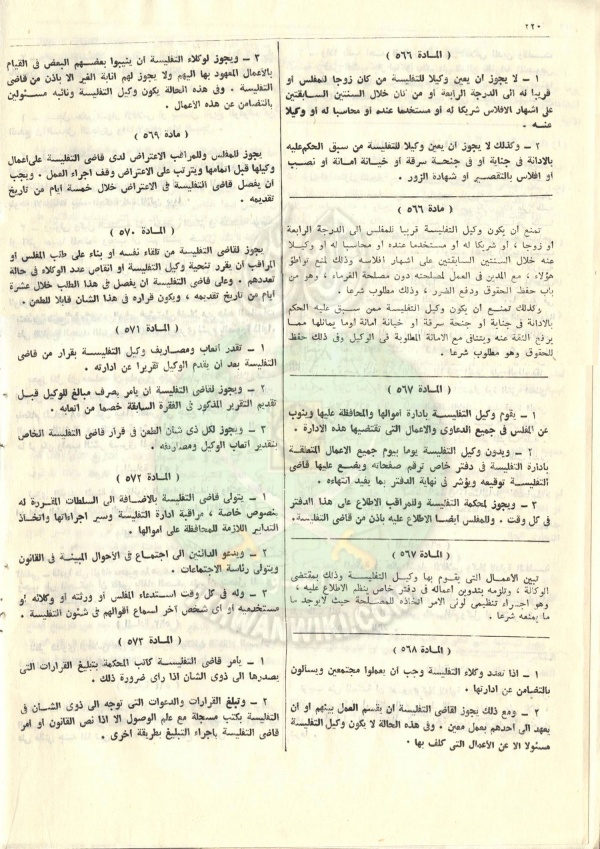 ٢٢٠
( المادة ٥٦٦ )
١ ـ لا يجوز ان يعين وكيلا للتفليسة من كان زوجا للمفلس او
قريبا له الى الدرجة الرابعة او من كان خلال السنتين السابقتين
على اشهار الافلاس شريكا له او مستخدما عنده او محاسبا له او وكيلا
عنه .
٢ ـ وكذلك لا يجوز ان يعين وكيلا للتفليسة من سبق الحكم عليه
بالادانة فى جناية او فى جنحة سرقة او خيانة امانة او نصب
او افلاس بالتقصير او شهادة الزور .
( مادة ٥٦٦ )
تمنع أن يكون وكيل التفليسة قريبا للمفلس الى الدرجة الرابعة
او زوجا ، أو شريكا له او مستخدما عنده او محاسبا له او وكيلا
عنه خلال السنتين السابقتين على اشهار افلاسه وذلك لمنع تواطؤ
هؤلاء ، مع المدين فى العمل لمصلحته دون مصلحة الغرماء ، وهو من
باب حفظ الحقوق ودفع الضرر ، وذلك مطلوب شرعا .
وكذلك تمنع ان يكون وكيل التفليسة ممن سبق عليه الحكم
بالادانة فى جناية او جنحة سرقة او خيانة امانة اوما يماثلها مما
يرفع الثقة عنه ويتنافى مع الامانة المطلوبة فى الوكيل وفى ذلك حفظ
للحقوق وهو مطلوب شرعا .
( المادة ٥٦٧ )
١ ـ يقوم وكيل التفليسة بادارة اموالها والمحافظة عليها وينوب
عن المفلس فى جميع الدعاوى والاعمال التى تقتضيها هذه الادارة .
٢ ـ ويدون وكيل التفليسة يوما بيوم جميع الاعمال المتعلقة
بادارة التفليسة فى دفتر خاص ترقم صفحاته ويضع عليها قاضى
التفليسة توقيعه ويؤشر فى نهاية الدفتر بما يفيد انتهاءه .
٣ ـ ويجوز لمحكمة التفليسة وللمراقب الاطلاع على هذا الدفتر
فى كل وقت . وللمفلس ايضا الاطلاع عليه باذن من قاضى التفليسة.
( المادة ٥٦٧ )
تبين الأعمال التى يقوم بها وكيل التفليسة وذلك بمقتضى
الوكالة ، وتلزمه بتدوين اعماله فى دفتر خاص ينظم الاطلاع عليه ،
وهو اجراء تنظيمى لولى الامر اتخاذه للمصلحة حيث لايوجد ما
يمنعه شرعا .
( المادة ٥٦٨ )
١ ـ اذا تعدد وكلاء التفليسة وجب ان يعملوا مجتمعين ويسألون
بالتضامن عن ادارتها .
٢ ـ ومع ذلك يجوز لقاضى التفليسة ان يقسم العمل بينهم او ان
يعهد الى احدهم بعمل معين . وفى هذه الحالة لا يكون وكيل التفليسة
مسئولا الا عن الأعمال التى كلف بها .
٣ ـ ويجوز لوكلاء التفليسة ان ينيبوا بعضهم البعض فى القيام
بالأعمال المعهود بها اليهم ولا يجوز لهم انابة الغير الا باذن من قاضى
التفليسة . وفى هذه الحالة يكون وكيل التفليسة ونائبه مسئولين
بالتضامن عن هذه الاعمال .
( مادة ٥٦٩ )
يجوز للمفلس وللمراقب الاعتراض لدى قاضى التفليسة على أعمال
وكيلها قبل اتمامها ويترتب على الاعتراض وقف اجراء العمل . ويجب
ان يفصل قاضى التفليسة فى الاعتراض خلال خمسة ايام من تاريخ
تقديمه .
( المادة ٥٧٠ )
يجوز لقاضى التفليسة من تلقاء نفسه او بناء على طلب المفلس او
المراقب ان يقرر تنحية وكيل التفليسة او انقاص عدد الوكلاء فى حالة
تعددهم . وعلى قاضى التفليسة ان يفصل فى هذا الطلب خلال عشرة
ايام من تاريخ تقديمه ، ويكون قراره فى هذا الشان قابلا للطعن .
( المادة ٥٧١ )
١ ـ تقدر أتعاب ومصاريف وكيل التفليسة بقرار من قاضى
التفليسة بعد ان يقدم الوكيل تقريرا عن ادارته .
٢ ـ ويجوز لقاضى التفليسة ان يأمر بصرف مبالغ للوكيل قبل
تقديم التقرير المذكور فى الفقرة السابقة خصما من اتعابه .
٣ ـ ويجوز لكل ذى شان الطعن فى قرار قاضى التفليسة الخاص
بتقدير اتعاب الوكيل ومصاريفه .
( المادة ٥٧٢ )
١ ـ يتولى قاضى التفليسة بالاضافة الى السلطات المقررة له
بنصوص خاصة ، مراقبة ادارة التفليسة وسير اجراءاتها واتخاذ
التدابير اللازمة للمحافظة على اموالها .
٢ ـ ويدعو الدائنين الى اجتماع فى الأحوال المبينة فى القانون
ويتولى رئاسة الاجتماعات .
٣ ـ وله فى كل وقت استدعاء المفلس او ورثته او وكلائه او
مستخدميه او أى شخص آخر لسماع أقوالهم فى شئون التفليسة .
( المادة ٥٧٣ )
١ ـ يأمر قاضى التفليسة كاتب المحكمة بتبليغ القرارات التى
يصدرها الى ذوى الشان اذا راى ضرورة ذلك .
٢ ـ وتبلغ القرارات والدعوات التى توجه الى ذوى الشان فى
التفليسة بكتب مسجلة مع علم الوصول الا اذا نص القانون او امر
قاضى التفليسة باجراء التبليغ بطريقة اخرى .